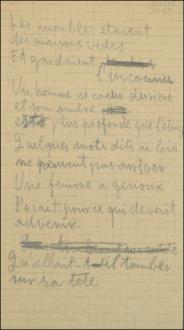 Les meubles étaient
des maisons vides
Et gardaient
l'inconnu
Un homme se cache derrière
et son ombre
est plus profonde que l'étang
Quelques mots dits au loin
ne peuvent pas arriver
Une femme à genoux
Priait pour ce qui devait
advenir
Qu'allait-il tomber
sur sa tête